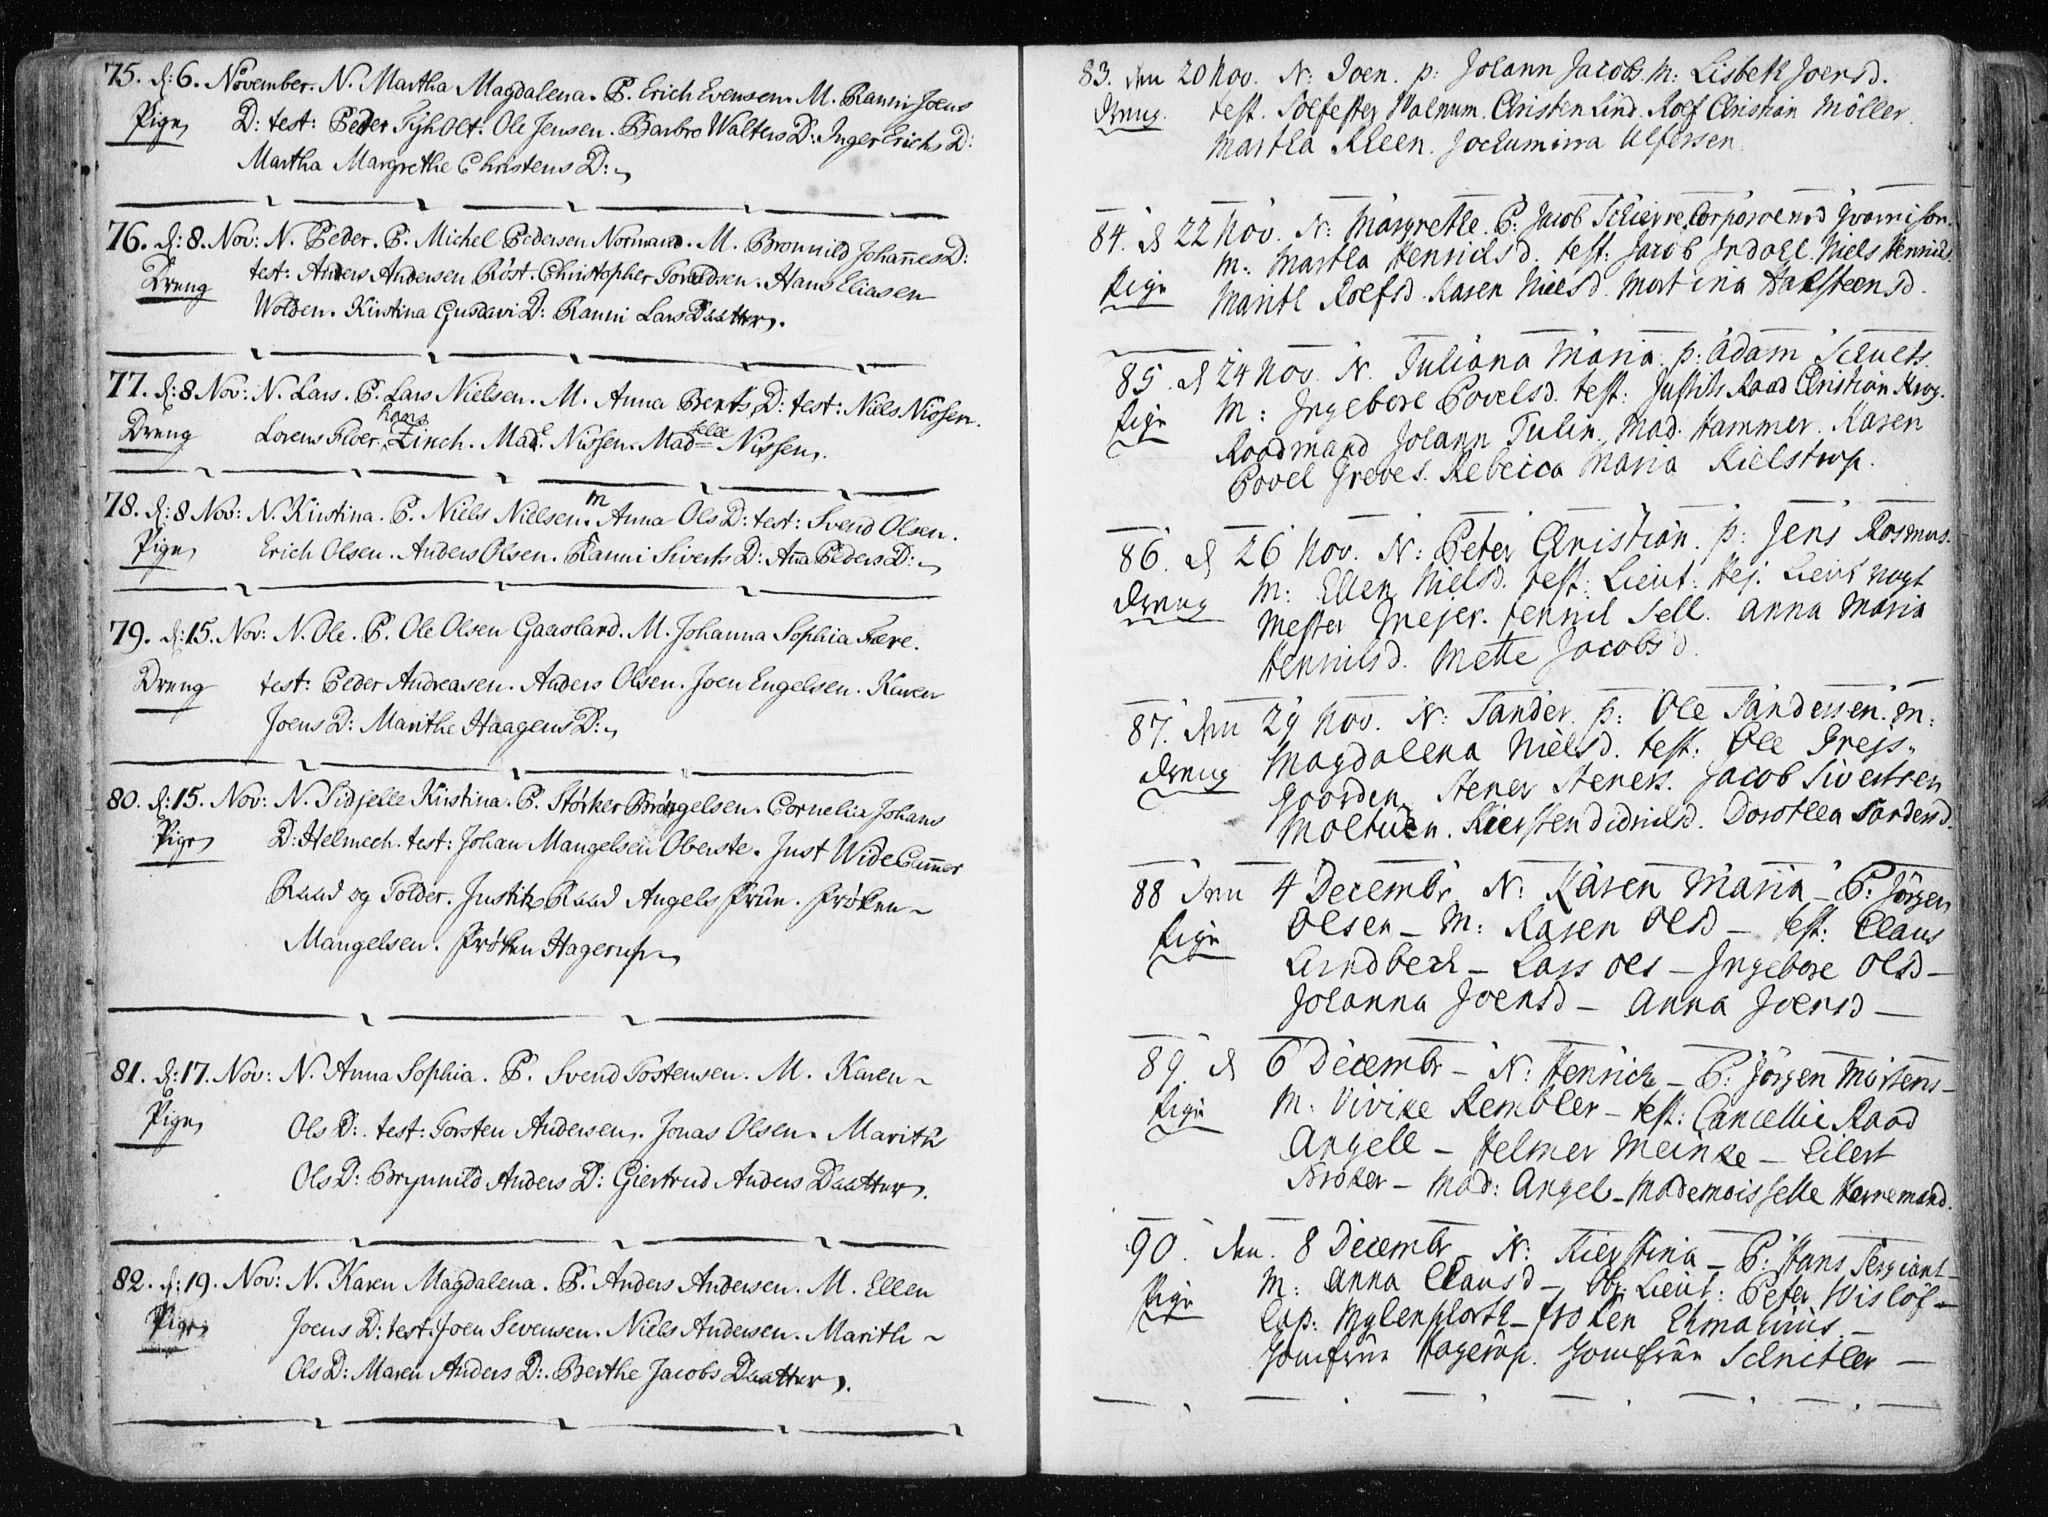 75. d: 6. November. N. Martha Magdalena. P. Erich Evensen. M. Ranni Joens
Pige D: test: Peder Tyholt. Ole Jensen. Barbro Walters D: Inger Erichs D:
Martha Margrethe Christens D:
76. d: 8. Nov: N. Peder. P. Michel Pedersen Normand. M. Bronnild Johannes D:
Dreng test: Anders Andersen Röst. Christopher Hans Eliasen
Wolden. Kirstina Gustavi D: Ranni Lars Daatter.
77. d: 8 Nov: N. Lars. P. Lars Nielsen. M. Anna Bents D: test: Niels Nissen.
Dreng Lorens Floer, hans Zinch. Mad: Nissen. Madselle Nissen.
78. d: 8 Nov: N. Kirstina. P. Niels Nielsen. M Anna Ols D: test: Svend Olsen.
Pige Erich Olsen. Anders Olsen. Ranni Siverts D: Anna Peders D:
79. d: 15. Nov: N. Ole. P. Ole Olsen Gaasland. M. Johanna Sophia Fære.
Dreng test: Peder Andreasen. Anders Olsen. Joen Engelsen. Karen
Joens D: Marithe Haagens D:
80. d: 15. Nov: N. Sidselle Kirstina. P. Störker Cornelia Johans
Pige D: Helmech. test: Johan Mangelsen Oberste. Just Wide Cammer
Raad og Tolder. Justitz Raad Angels Frue. Fröken
Mangelsen. Fröken Hagerup
81. d: 17. Nov: N. Anna Sophia. P. Svend Tostensen. M. Karen
Pige Ols D: test: Torsten Andersen. Jonas Olsen. Marith
Ols D: Brynnild Anders D: Giertrud Anders Daatter.
82. d: 19. Nov: N. Karen Magdalena. P. Anders Andersen. M. Ellen
Pige Joens D: test: Joen Sevensen. Niels Andersen. Marith
Ols D: Maren Anders D: Berthe Jacobs Daatter.
83. den 20 Nov. N: Joen. p: Johann Jacobs. M: Lisbeth Joensd.
Dreng. test. Christen Lind. Rolf Christian Möller.
Martha Kleen. Jochumina Ulfersen.
84. d 22 Nov. N: Margrethe. P: Jacob
Pige M: Martha Henrichsd. test: Jacob Indahl. Niels Henrichs.
Marith Rolfsd. Karen Nielsd. Martina Halsteensd.
85. d 24 Nov. N. Juliana Maria. p: Adam
Pige M: Ingebore Povelsd. test: Justits Raad Christian Krog.
Raadmand Johann Tulin. Mad. Hammer. Karen
Povel Greves. Rebecca Maria Kielstrup.
86. d 26 Nov. N: Peter Christian. p: Jens Rasmus.
Dreng M: Ellen Nielsd. test: Lieut: Hej. Lieut Vogt
Mester Mejer. Henrich Sell. Anna Maria
Henrichsd. Mette Jacobsd.
87. den 29 Nov. N: Sander. p: Ole Sandersen. M:
Dreng Magdalena Nielsd. test: Ole Grejs-
gaarden Stener Steners. Jacob Sivertsen
Kiersten Didrichsd. Dorothea Sandersd.
88 den 4 Decembr N: Karen Maria - P: Jörgen
Pige Olsen - M: Karen Olsd - test: Claus
Lundbech - Lars Ols - Ingebore Olsd -
Johanna Joensd - Anna Joensd -
89. d 6 Decembr - N: Henrich - P: Jörgen Mortens -
Pige M: Vivike Rembler - test: Cancellie Raad
Angell - Helmer Meinke - Eilert
Bröker - Mad: Angel - Mademoisselle Hornemand.
90. den. 8 Decembr - N: Kierstina - P: Hans Sergiant -
Pige M: Anna Clausd - Ob: Lieut: Peter Wislöf -
Cap: Mylenphorth - Fröken Ehmahuus. -
Jomfrue Hagerup. Jomfrue Schnitler -